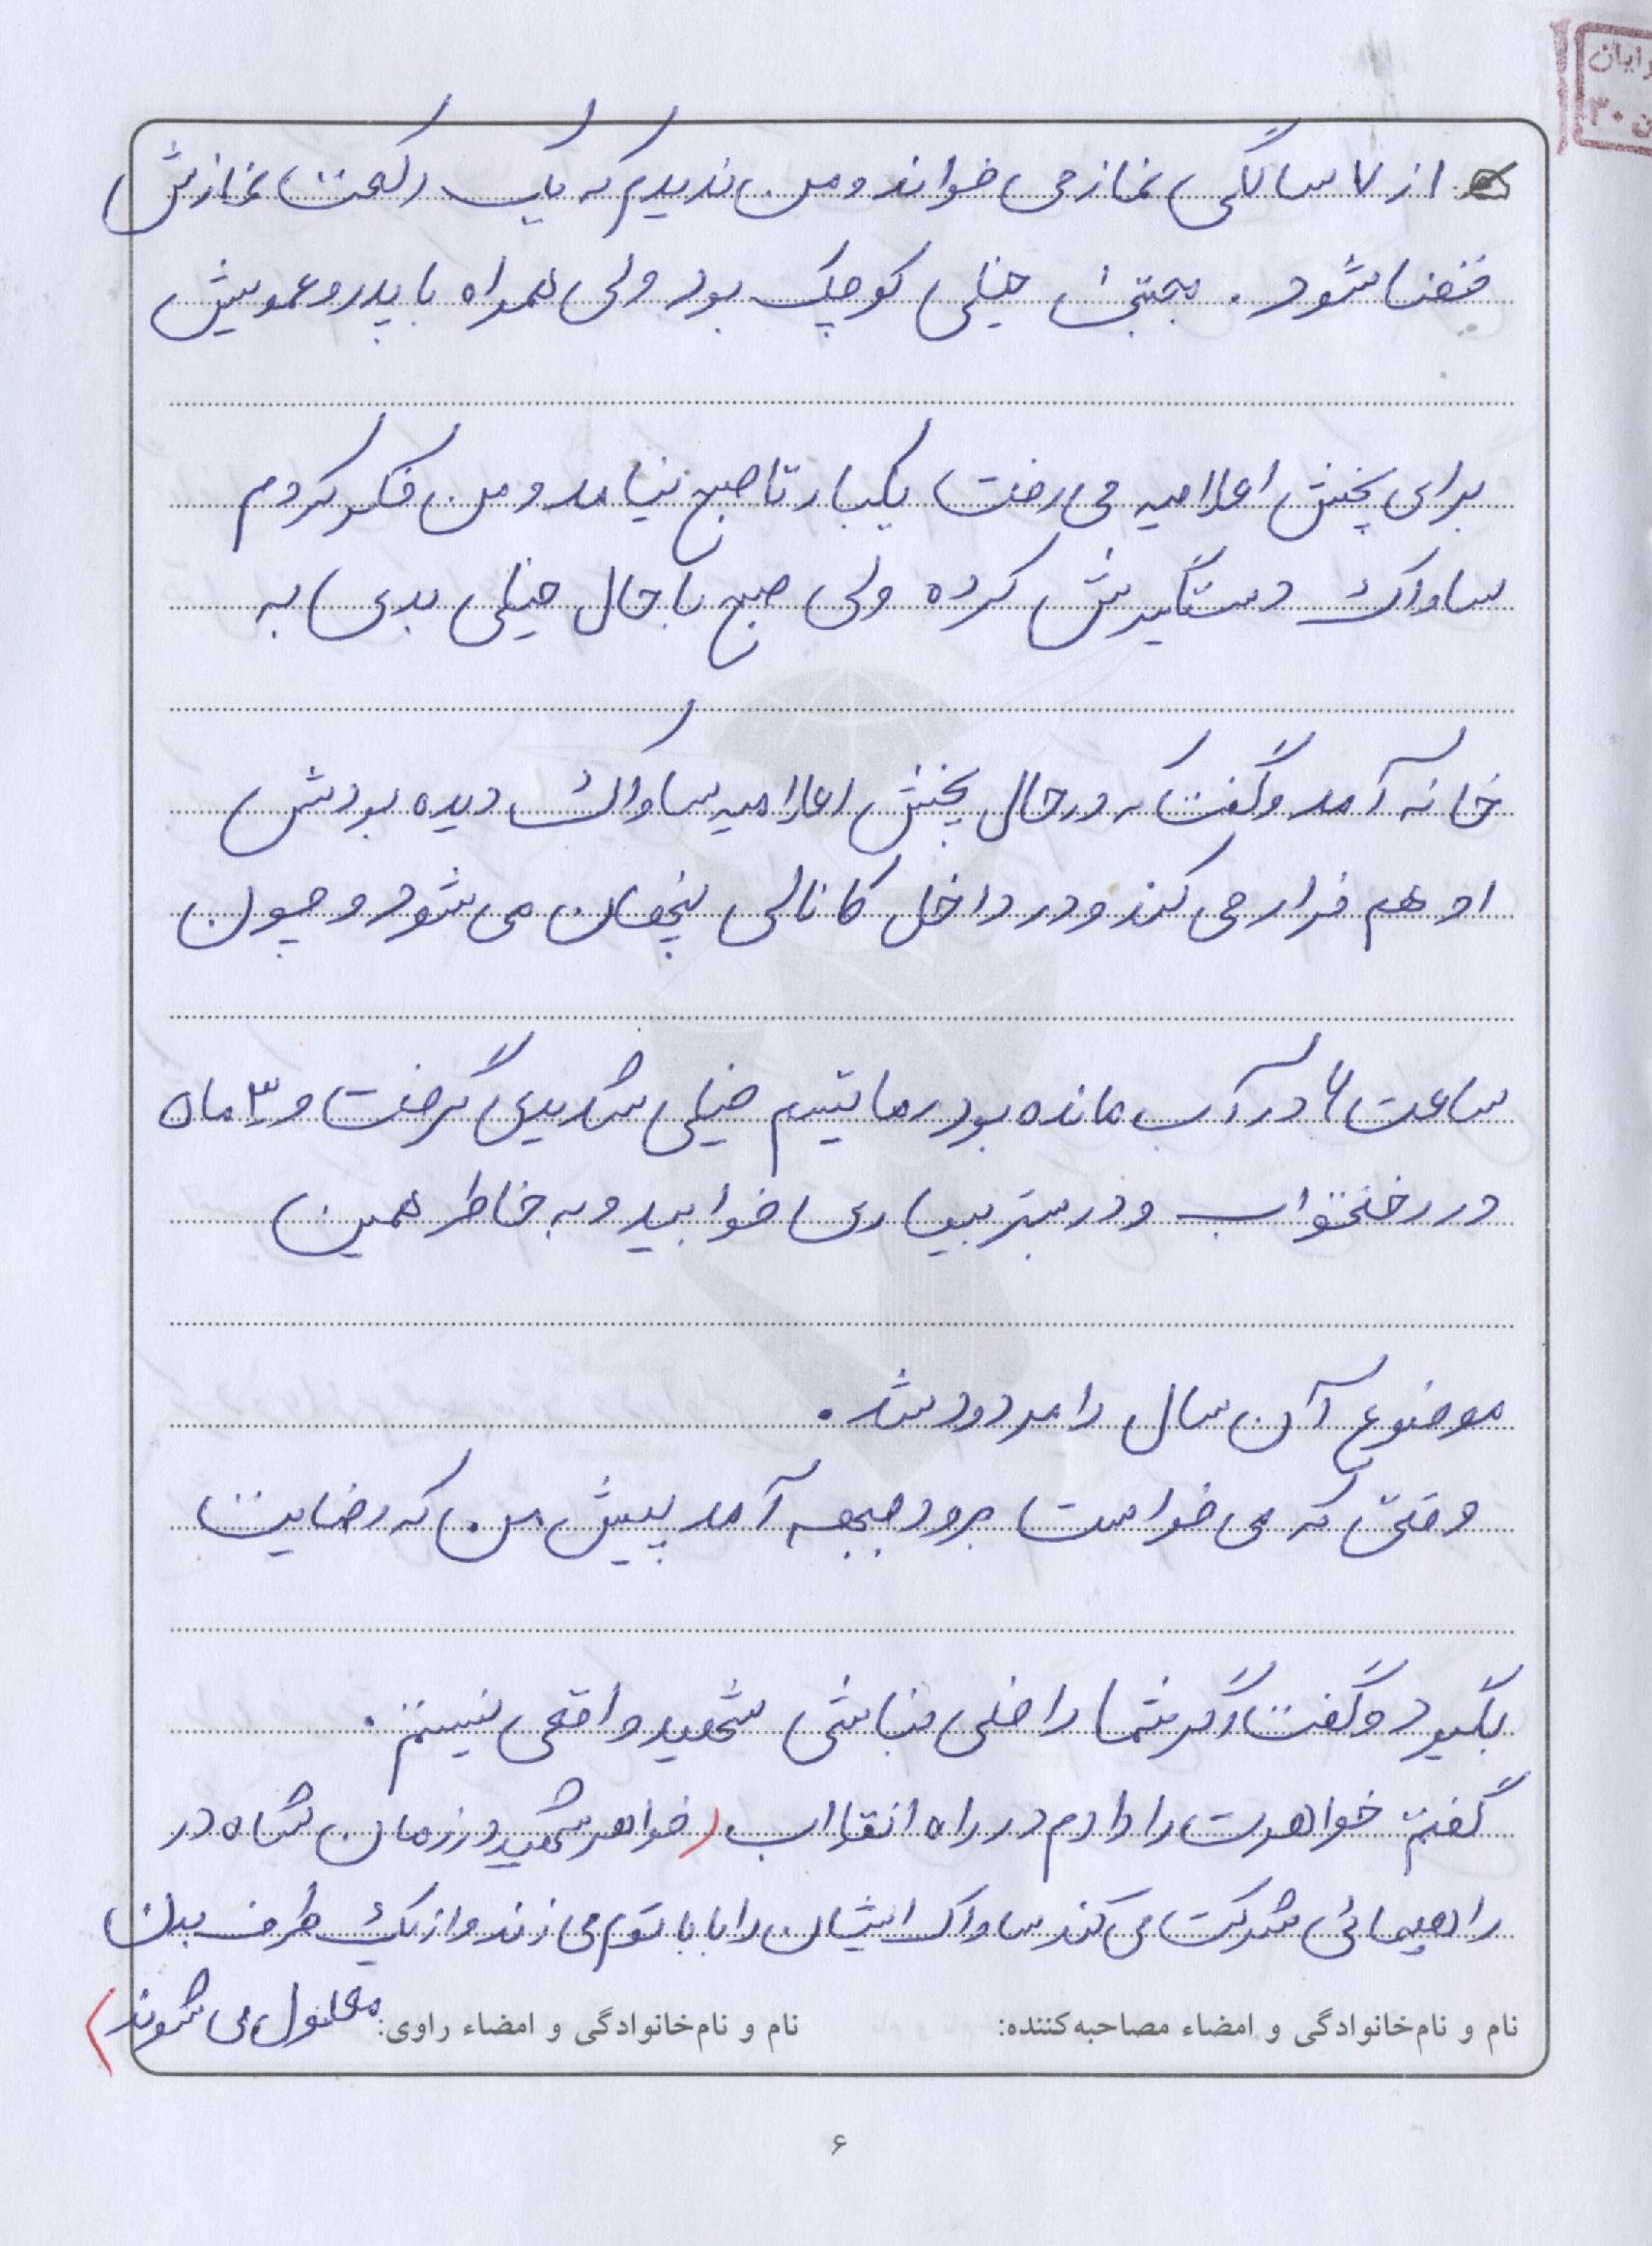 رایان
ن ۳۰
از ۷ سالگی نماز می خواند و من ندیدم که یک رکعت نمازش
قضا شود. مجتبی خیلی کوچک بود ولی همراه با پدر و عمویش
برای پخش اعلامیه می رفت یکبار تا صبح نیامد و من فکر کردم
ساواک دستگیرش کرده ولی صبح با حال خیلی بدی به
خانه آمد و گفت که در حال پخش اعلامیه ساواک دیده بودش
او هم فرار می کند و در داخل کانالی پنهان می شود و چون
ساعت ۶ در آب مانده بود رماتیسم خیلی شدیدی گرفت و ۳ ماه
در رختخواب و در بستر بیماری خوابید و به خاطر همین
موضوع آن سال را مردود شد.
وقتی که می خواست برود جبهه آمد پیش من که رضایت
بگیرد و گفت اگر شما راضی نباشی شهید واقعی نیستم.
گفتم خواهرت را دادم در راه انقلاب (خواهر شهید در زمان شاه در
راهپیمائی شرکت می کند ساواک ایشان را با باتوم می زند و از یک طرف بدن
معلول می شوند)
نام و نام‌خانوادگی و امضاء مصاحبه‌کننده: نام و نام‌خانوادگی و امضاء راوی:
۶